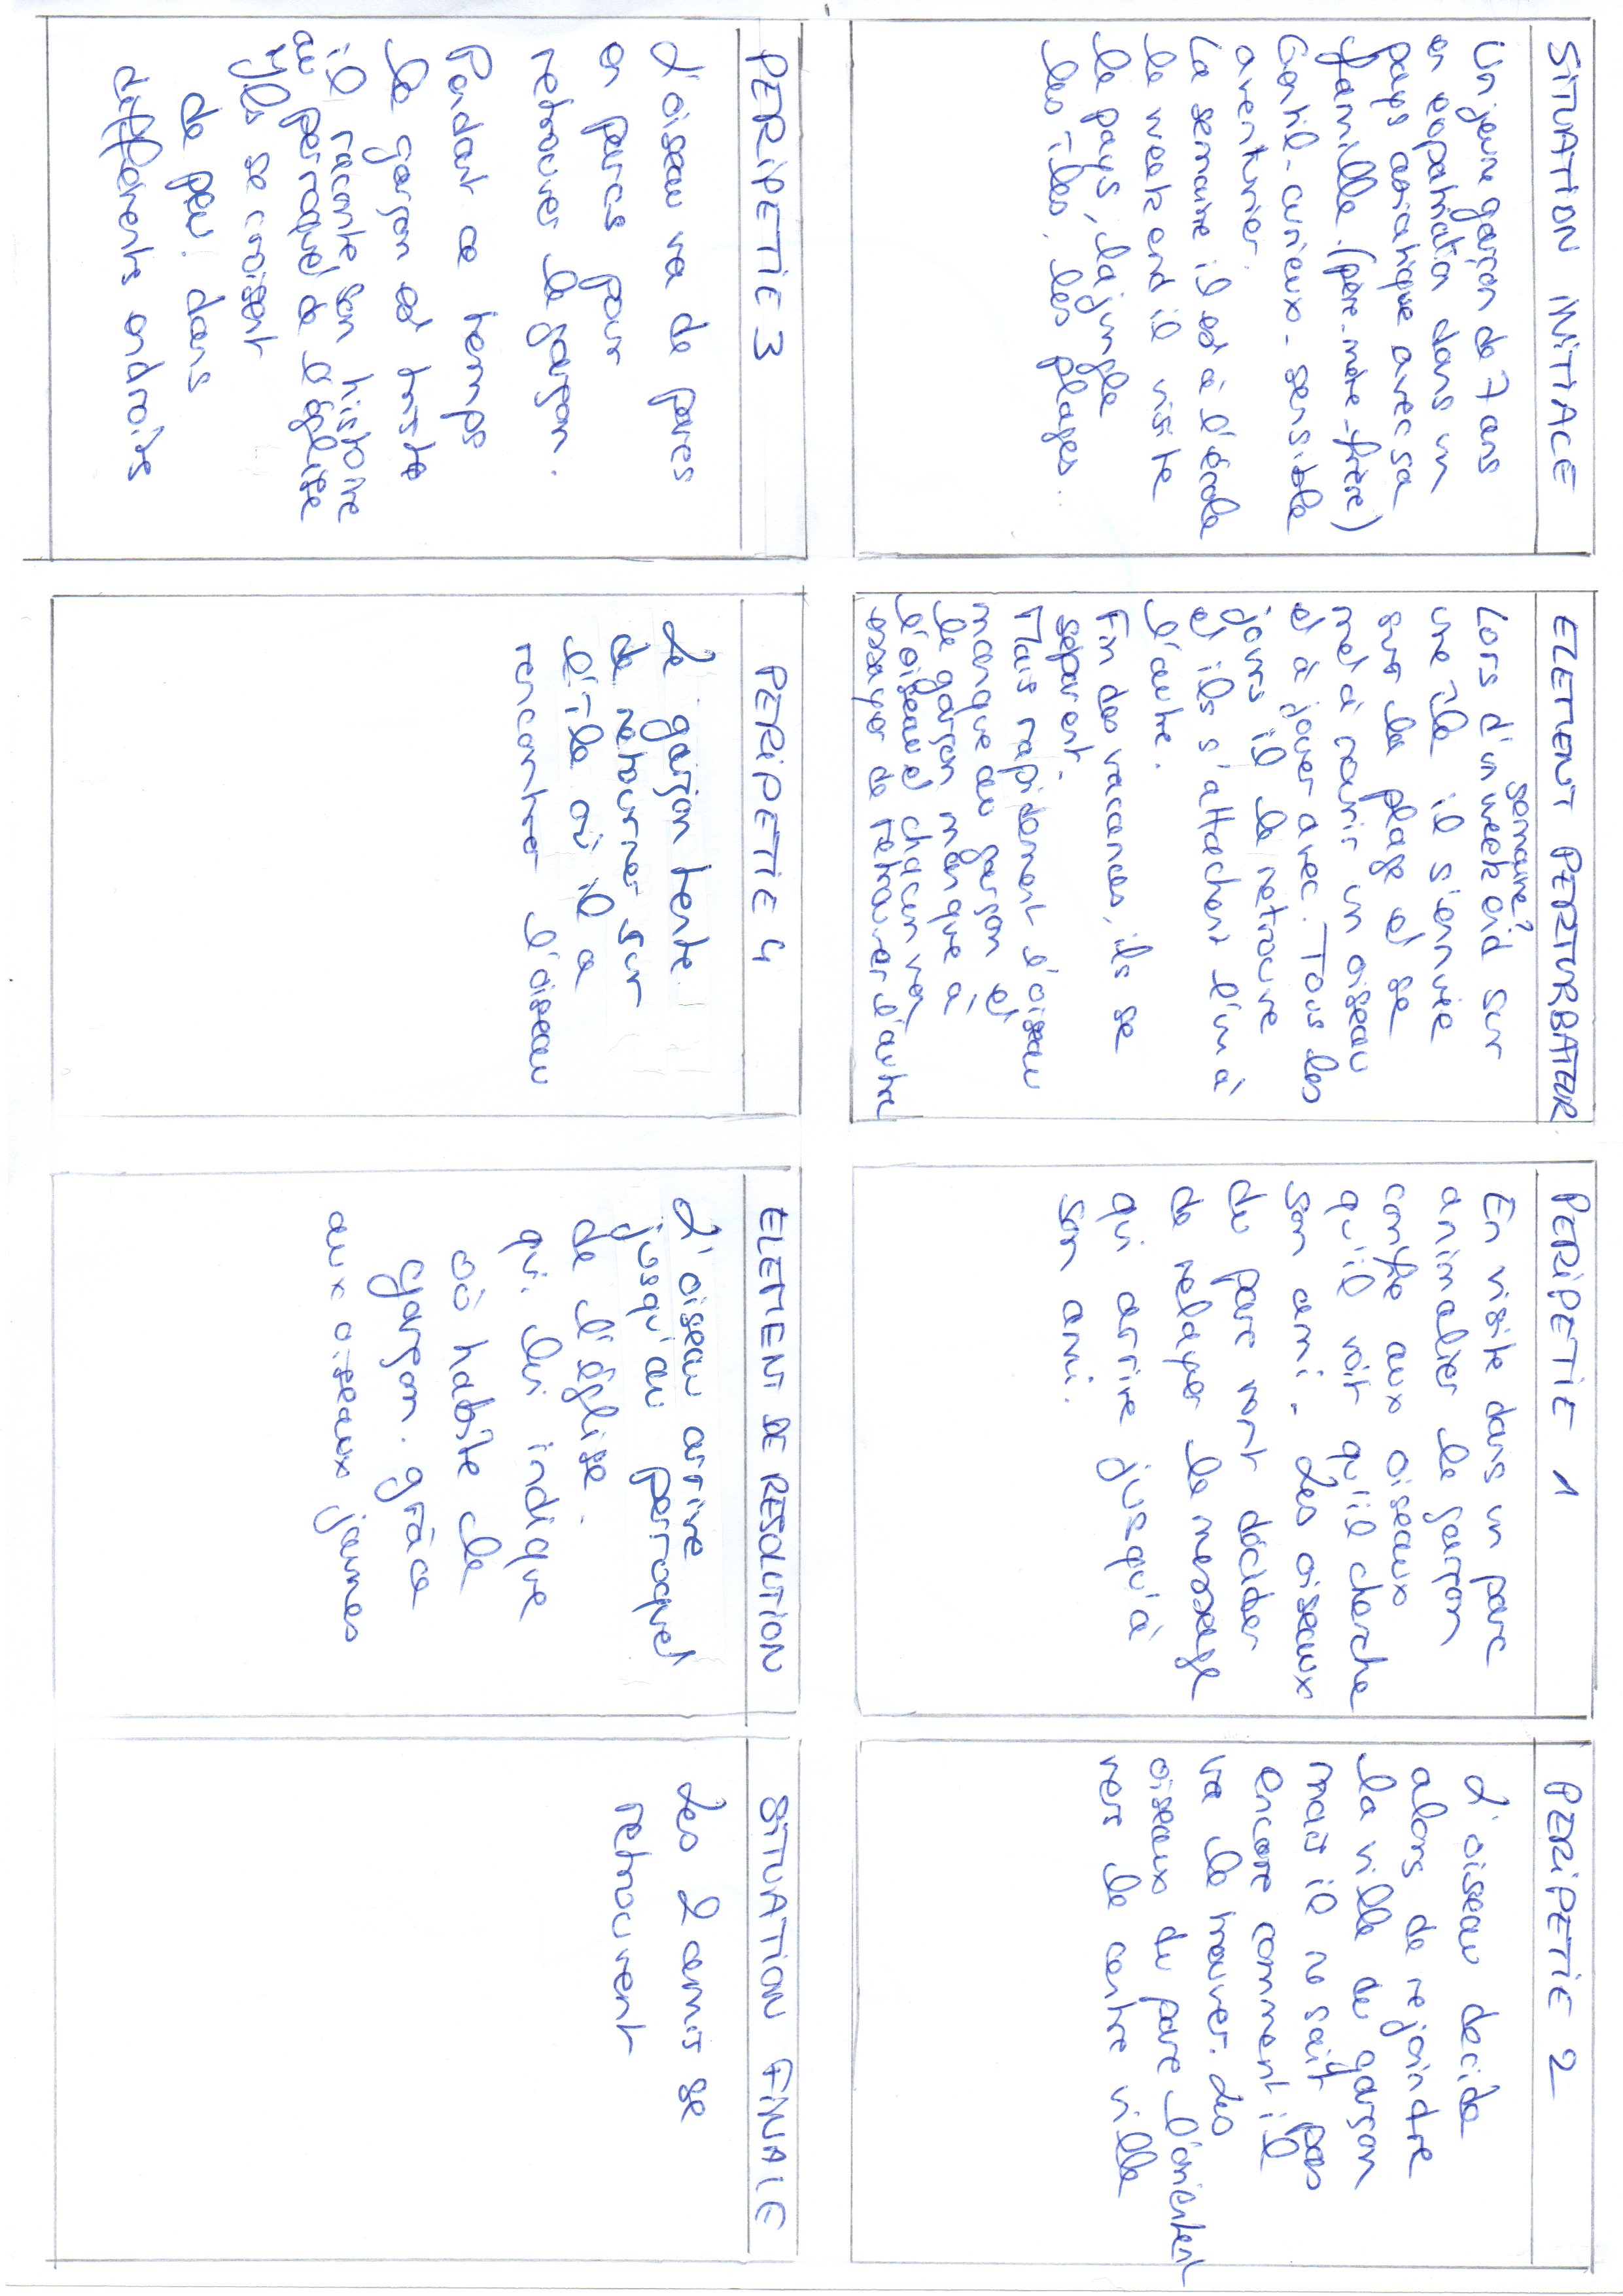 SITUATION INITIALE
Un jeune garçon de 7 ans
en expatriation dans un
pays asiatique avec sa
famille. (père-mère-frère)
Gentil-curieux-sensible
aventurier.
La semaine il est à l'école
le week end il visite
le pays, la jungle
les îles, les plages...
ELEMENT PERTURBATEUR
semaine?
Lors d'un week end sur
une île il s'ennuie
sur la plage et se
met à nourrir un oiseau
et à jouer avec. Tous les
jours il le retrouve
et ils s'attachent l'un à
l'autre.
Fin des vacances, ils se
séparent.
Mais rapidement l'oiseau
manque au garçon et
le garçon manque à
l'oiseau et chacun va
essayer de retrouver l'autre
PERIPETIE 1
En visite dans un parc
animalier le garçon
confie aux oiseaux
qu'il voit qu'il cherche
son ami. Les oiseaux
du parc vont décider
de relayer le message
qui arrive jusqu'à
son ami.
PERIPETIE 2
L'oiseau décide
alors de rejoindre
la ville du garçon
mais il ne sait pas
encore comment il
va le trouver. Les
oiseaux du parc l'orientent
vers le centre ville
PERIPETIE 3
L'oiseau va de parcs
en parcs pour
retrouver le garçon.
Pendant ce temps
le garçon est triste
il raconte son histoire
au perroquet de l'église
Ils se croisent
de peu. dans
différents endroits
PERIPETIE 4
Le garçon tente
de retourner sur
l'île où il a
rencontrer l'oiseau
ELEMENT DE RESOLUTION
L'oiseau arrive
jusqu'au perroquet
de l'église.
qui lui indique
où habite le
garçon. grâce
aux oiseaux jaunes
SITUATION FINALE
Les 2 amis se
retrouvent